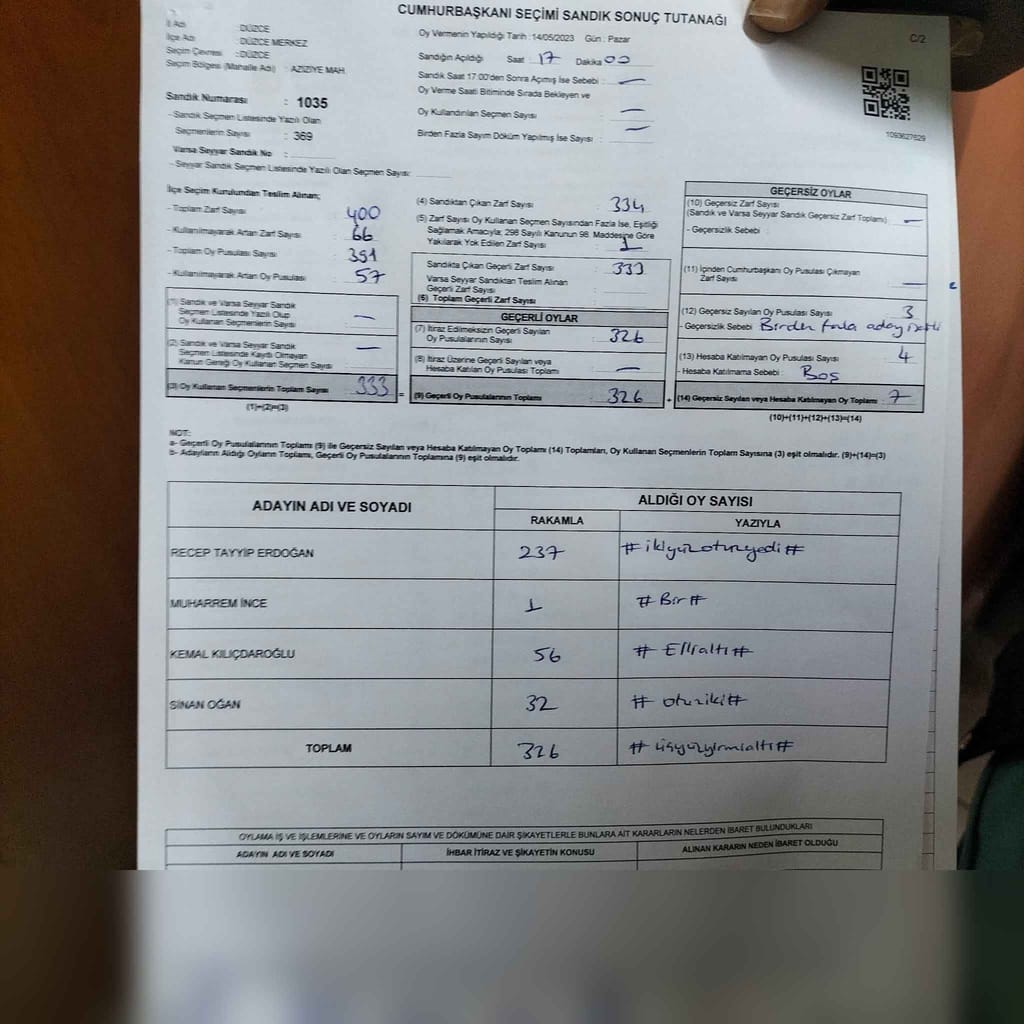 CUMHURBAŞKANI SEÇİMİ SANDIK SONUÇ TUTANAĞI
C/2
İl Adı : DÜZCE
İlçe Adı : DÜZCE MERKEZ
Seçim Çevresi : DÜZCE
Seçim Bölgesi (Mahalle Adı) : AZİZİYE MAH.
Sandık Numarası : 1035
- Sandık Seçmen Listesinde Yazılı Olan
Seçmenlerin Sayısı : 369
Varsa Seyyar Sandık No :
- Seyyar Sandık Seçmen Listesinde Yazılı Olan Seçmen Sayısı:
Oy Vermenin Yapıldığı Tarih : 14/05/2023 Gün : Pazar
Sandığın Açıldığı Saat : 17 Dakika 00
Sandık Saat 17:00'den Sonra Açmış İse Sebebi : —
Oy Verme Saati Bitiminde Sırada Bekleyen ve
Oy Kullandırılan Seçmen Sayısı : —
Birden Fazla Sayım Döküm Yapılmış İse Sayısı : —
1093627629
İlçe Seçim Kurulundan Teslim Alınan;
- Toplam Zarf Sayısı : 400
- Kullanılmayarak Artan Zarf Sayısı : 66
- Toplam Oy Pusulası Sayısı : 391
- Kullanılmayarak Artan Oy Pusulası : 57
(1) Sandık ve Varsa Seyyar Sandık
Seçmen Listesinde Yazılı Olup
Oy Kullanan Seçmenlerin Sayısı : —
(2) Sandık ve Varsa Seyyar Sandık
Seçmen Listesinde Kayıtlı Olmayan
Kanun Gereği Oy Kullanan Seçmen Sayısı : —
(3) Oy Kullanan Seçmenlerin Toplam Sayısı : 333 =
(1)+(2)=(3)
(4) Sandıktan Çıkan Zarf Sayısı : 334
(5) Zarf Sayısı Oy Kullanan Seçmen Sayısından Fazla İse, Eşitliği
Sağlamak Amacıyla; 298 Sayılı Kanunun 98. Maddesine Göre
Yakılarak Yok Edilen Zarf Sayısı : 1
Sandıkta Çıkan Geçerli Zarf Sayısı : 333
Varsa Seyyar Sandıktan Teslim Alınan
Geçerli Zarf Sayısı :
(6) Toplam Geçerli Zarf Sayısı :
GEÇERLİ OYLAR
(7) İtiraz Edilmeksizin Geçerli Sayılan
Oy Pusulalarının Sayısı : 326
(8) İtiraz Üzerine Geçerli Sayılan veya
Hesaba Katılan Oy Pusulası Toplamı : —
(9) Geçerli Oy Pusulalarının Toplamı : 326 +
GEÇERSİZ OYLAR
(10) Geçersiz Zarf Sayısı
(Sandık ve Varsa Seyyar Sandık Geçersiz Zarf Toplamı) : —
- Geçersizlik Sebebi :
(11) İçinden Cumhurbaşkanı Oy Pusulası Çıkmayan
Zarf Sayısı : —
(12) Geçersiz Sayılan Oy Pusulası Sayısı : 3
- Geçersizlik Sebebi : Birden fazla aday
(13) Hesaba Katılmayan Oy Pusulası Sayısı : 4
- Hesaba Katılmama Sebebi : Boş
(14) Geçersiz Sayılan veya Hesaba Katılmayan Oy Toplamı : 7
(10)+(11)+(12)+(13)=(14)
NOT:
a- Geçerli Oy Pusulalarının Toplamı (9) ile Geçersiz Sayılan veya Hesaba Katılmayan Oy Toplamı (14) Toplamları, Oy Kullanan Seçmenlerin Toplam Sayısına (3) eşit olmalıdır. (9)+(14)=(3)
b- Adayların Aldığı Oyların Toplamı, Geçerli Oy Pusulalarının Toplamına (9) eşit olmalıdır.
ADAYIN ADI VE SOYADI ALDIĞI OY SAYISI
RAKAMLA YAZIYLA
RECEP TAYYİP ERDOĞAN 237 #ikiyüzotuzyedi#
MUHARREM İNCE 1 #Bir#
KEMAL KILIÇDAROĞLU 56 #Ellialtı#
SİNAN OĞAN 32 #otuziki#
TOPLAM 326 #üçyüzyirmialtı#
OYLAMA İŞ VE İŞLEMLERİNE VE OYLARIN SAYIM VE DÖKÜMÜNE DAİR ŞİKAYETLERLE BUNLARA AİT KARARLARIN NELERDEN İBARET BULUNDUKLARI
ADAYIN ADI VE SOYADI İHBAR İTİRAZ VE ŞİKAYETİN KONUSU ALINAN KARARIN NEDEN İBARET OLDUĞU